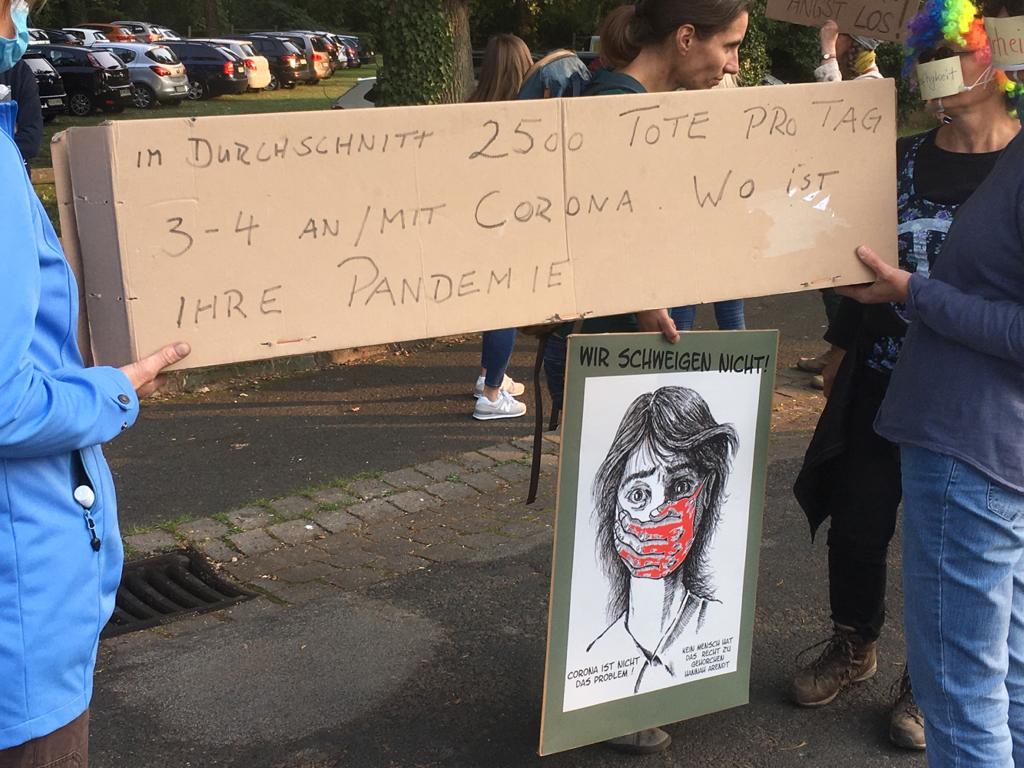 ANGST LOS!
IM DURCHSCHNITT 2500 TOTE PRO TAG
3-4 AN/MIT CORONA. WO iST
IHRE PANDEMIE
WIR SCHWEIGEN NICHT!
CORONA IST NICHT
DAS PROBLEM!
KEIN MENSCH HAT
DAS RECHT ZU
GEHORCHEN
HANNAH ARENDT